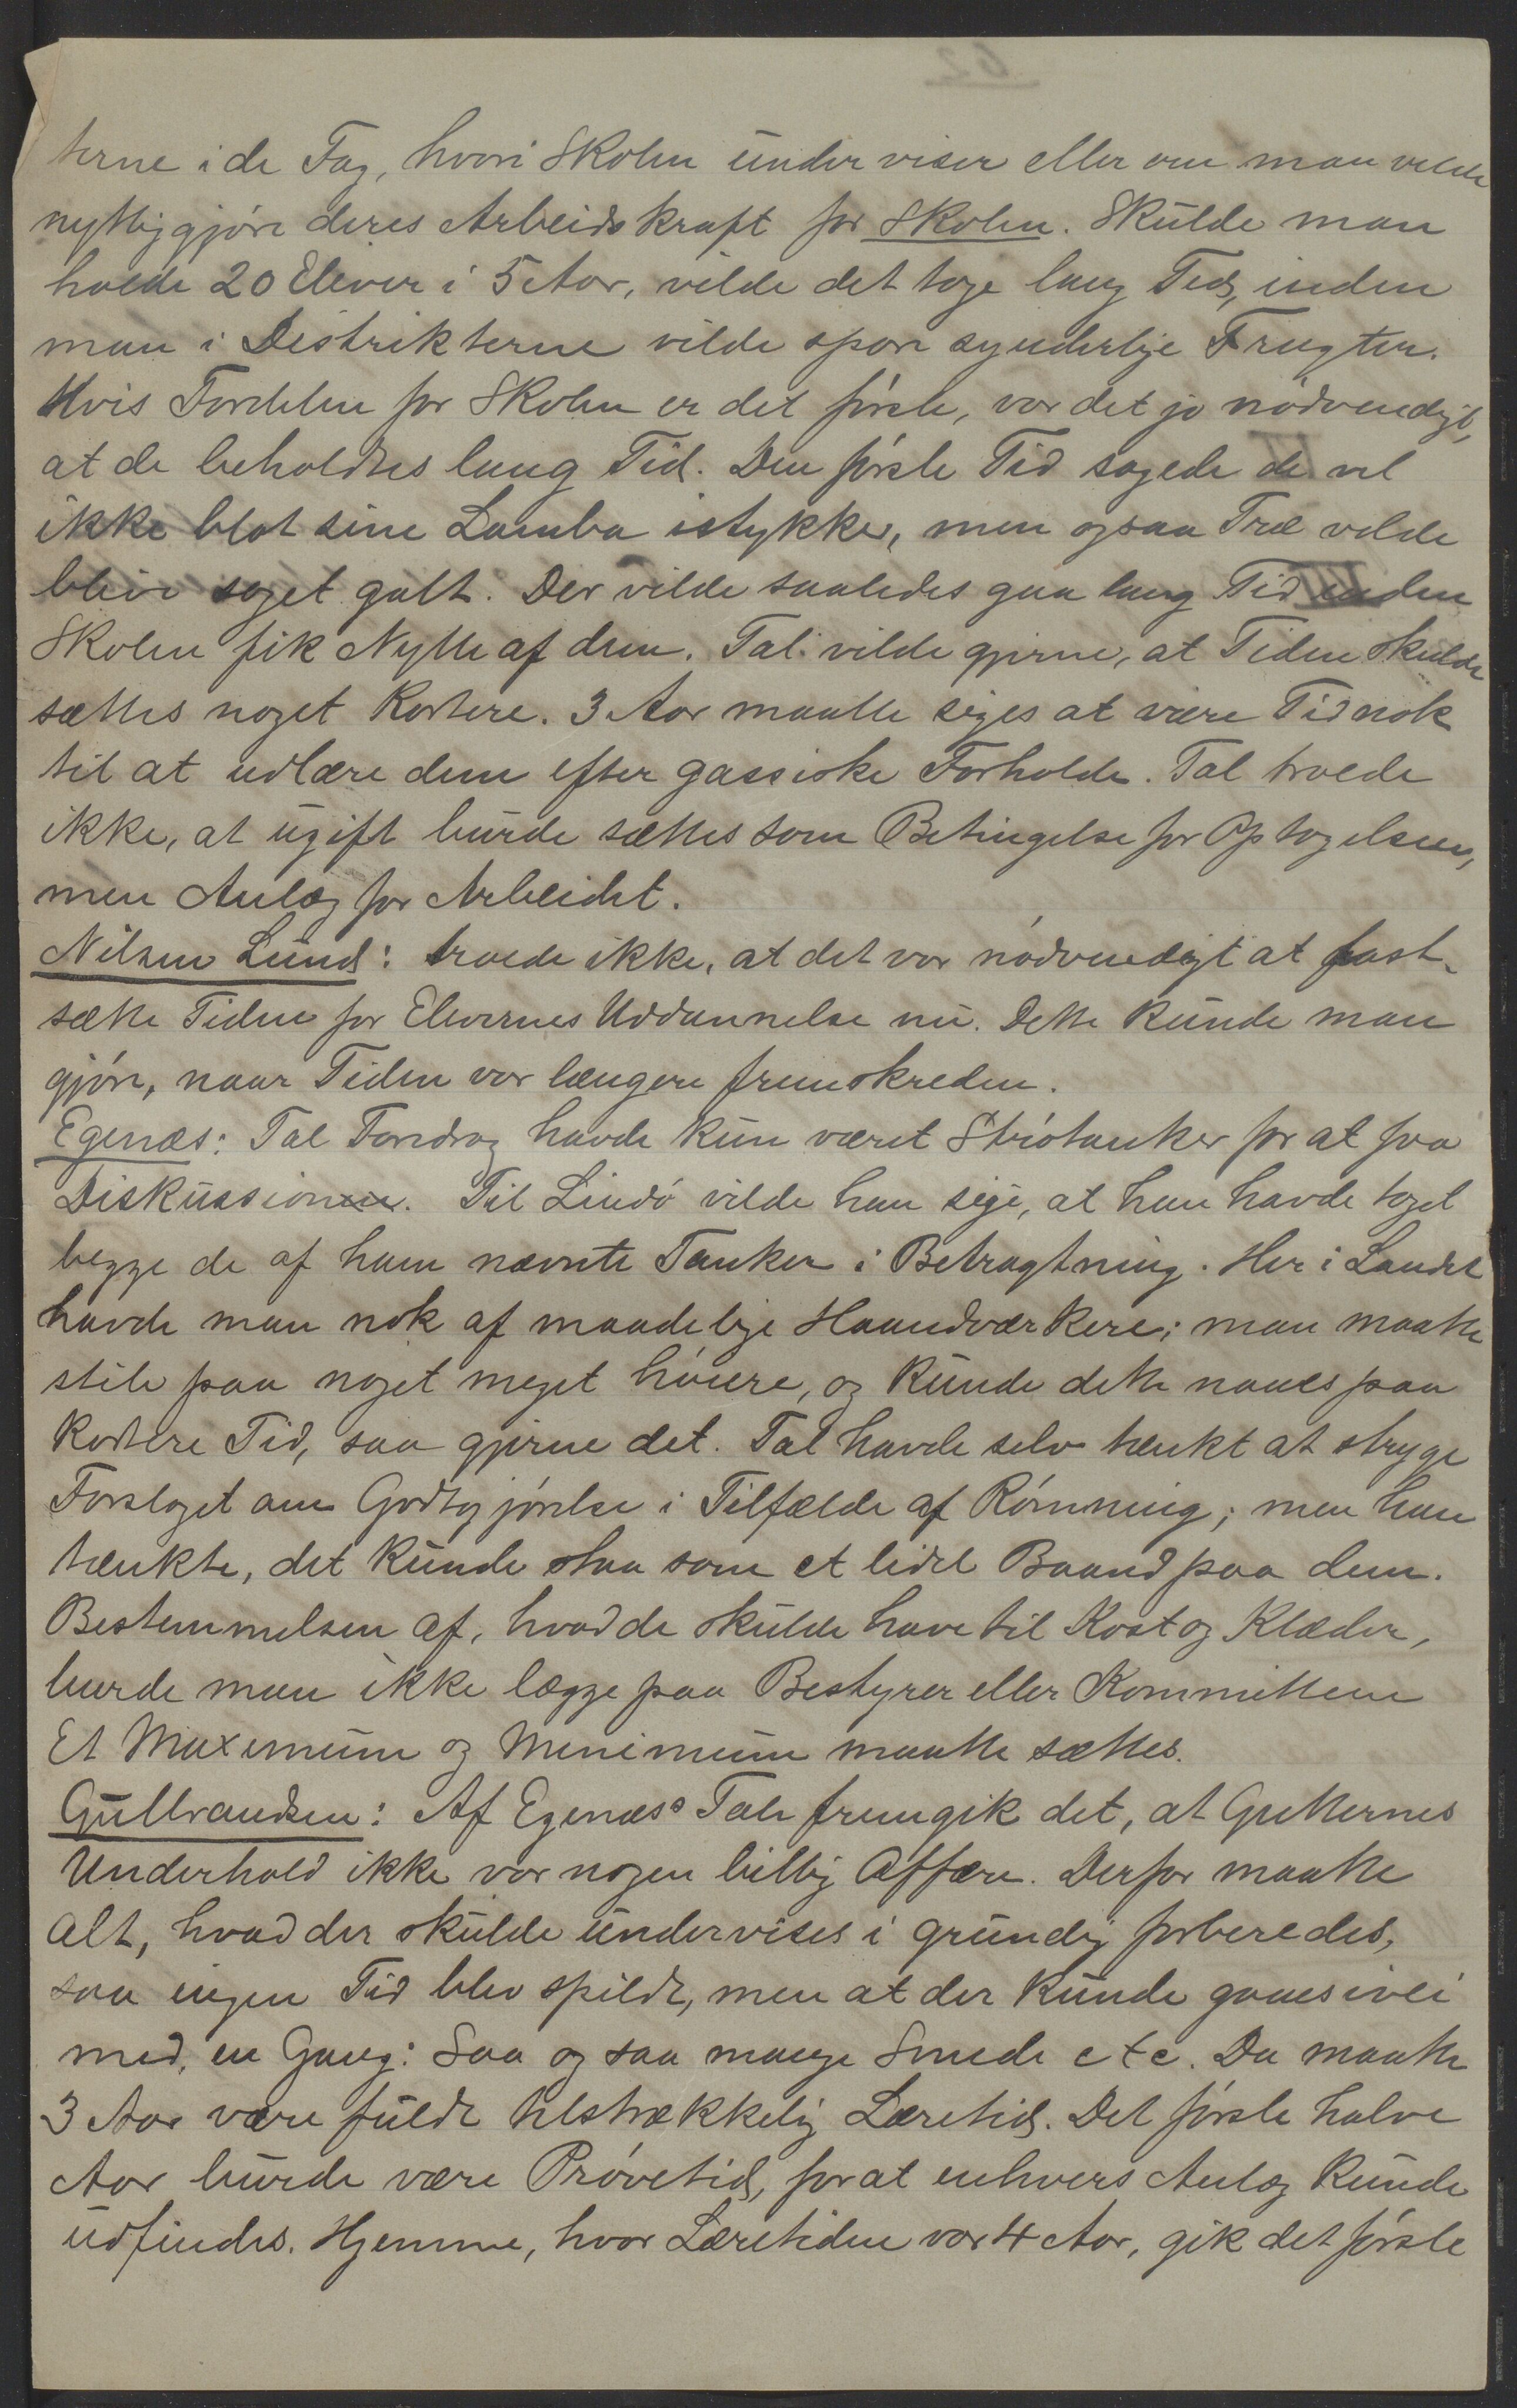 terne i de Fag, hvori Skolen underviser eller om man vilde
nyttiggjøre deres Arbeidskraft for Skolen. Skulde man
holde 20 Elever i 5 Aar, vilde det tage lang Tid, inden
man i Distrikterne vilde spore synderlige Frugter.
Hvis Fordelen for Skolen er det første, var det jo nødvendigt,
at de beholdtes lang Tid. Den første Tid sagede de vel
ikke blot sine Lamba istykker, men ogsaa Træ vilde
blive saget galt. Der vilde saaledes gaa lang Tid inden
Skolen fik Nytte af dem. Tal. vilde gjerne, at Tiden skulde
sættes noget kortere. 3 Aar maatte siges at være Tid nok
til at udlære dem efter gassiske Forholde. Tal troede
ikke, at ugift burde sættes som Betingelse for Optagelsen,
men Anlæg for Arbeidet.
Nilsen Lund: troede ikke, at det var nødvendigt at fast-
sætte Tiden for Elevernes Uddannelse nu. Dette kunde man
gjøre, naar Tiden var længere fremskreden.
Egenæs: Tal Foredrag havde kun været Strøtanker for at faa
Diskussion. Til Lindø vilde han sige, at han havde taget
begge de af ham nævnte Tanker i Betragtning. Her i Landet
havde man nok af maadelige Haandværkere; man maatte
stile paa noget meget høiere, og kunde dette naaes paa
kortere Tid, saa gjerne det. Tal havde selv tænkt at stryge
Forslaget om Godtgjørelse i Tilfælde af Rømning; men han
tænkte, det kunde staa som et lidet Baand paa dem.
Bestemmelsen af, hvad de skulde have til Kost og Klæder,
burde man ikke lægge paa Bestyrer eller Kommitteen
Et Maximum og Minimum maatte sættes.
Gulbrandsen: Af Egenæs's Tale fremgik det, at Gutternes
Underhold ikke var nogen billig Affære. Derfor maatte
alt, hvad der skulde undervises i grundig forberedes,
saa ingen Tid blev spildt, men at der kunde gaaes ivei
med en Gang: Saa og saa mange Smede etc. Da maatte
3 Aar være fuldt tilstrækkelig Læretid. Det første halve
Aar burde være Prøvetid, for at enhvers Anlæg kunde
udfindes. Hjemme, hvor Læretiden var 4 Aar, gik det første